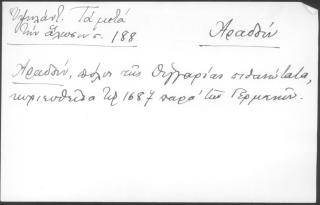 Ὑψηλάντ. Τὰ μετὰ
τὴν ἅλωσιν σ. 188
Ἀραδὸν
Ἀραδὸν, πόλις τῆς Οὑγγαρίας
κυριευθεῖσα τῷ 1687 παρὰ τῶν Γερμανῶν.